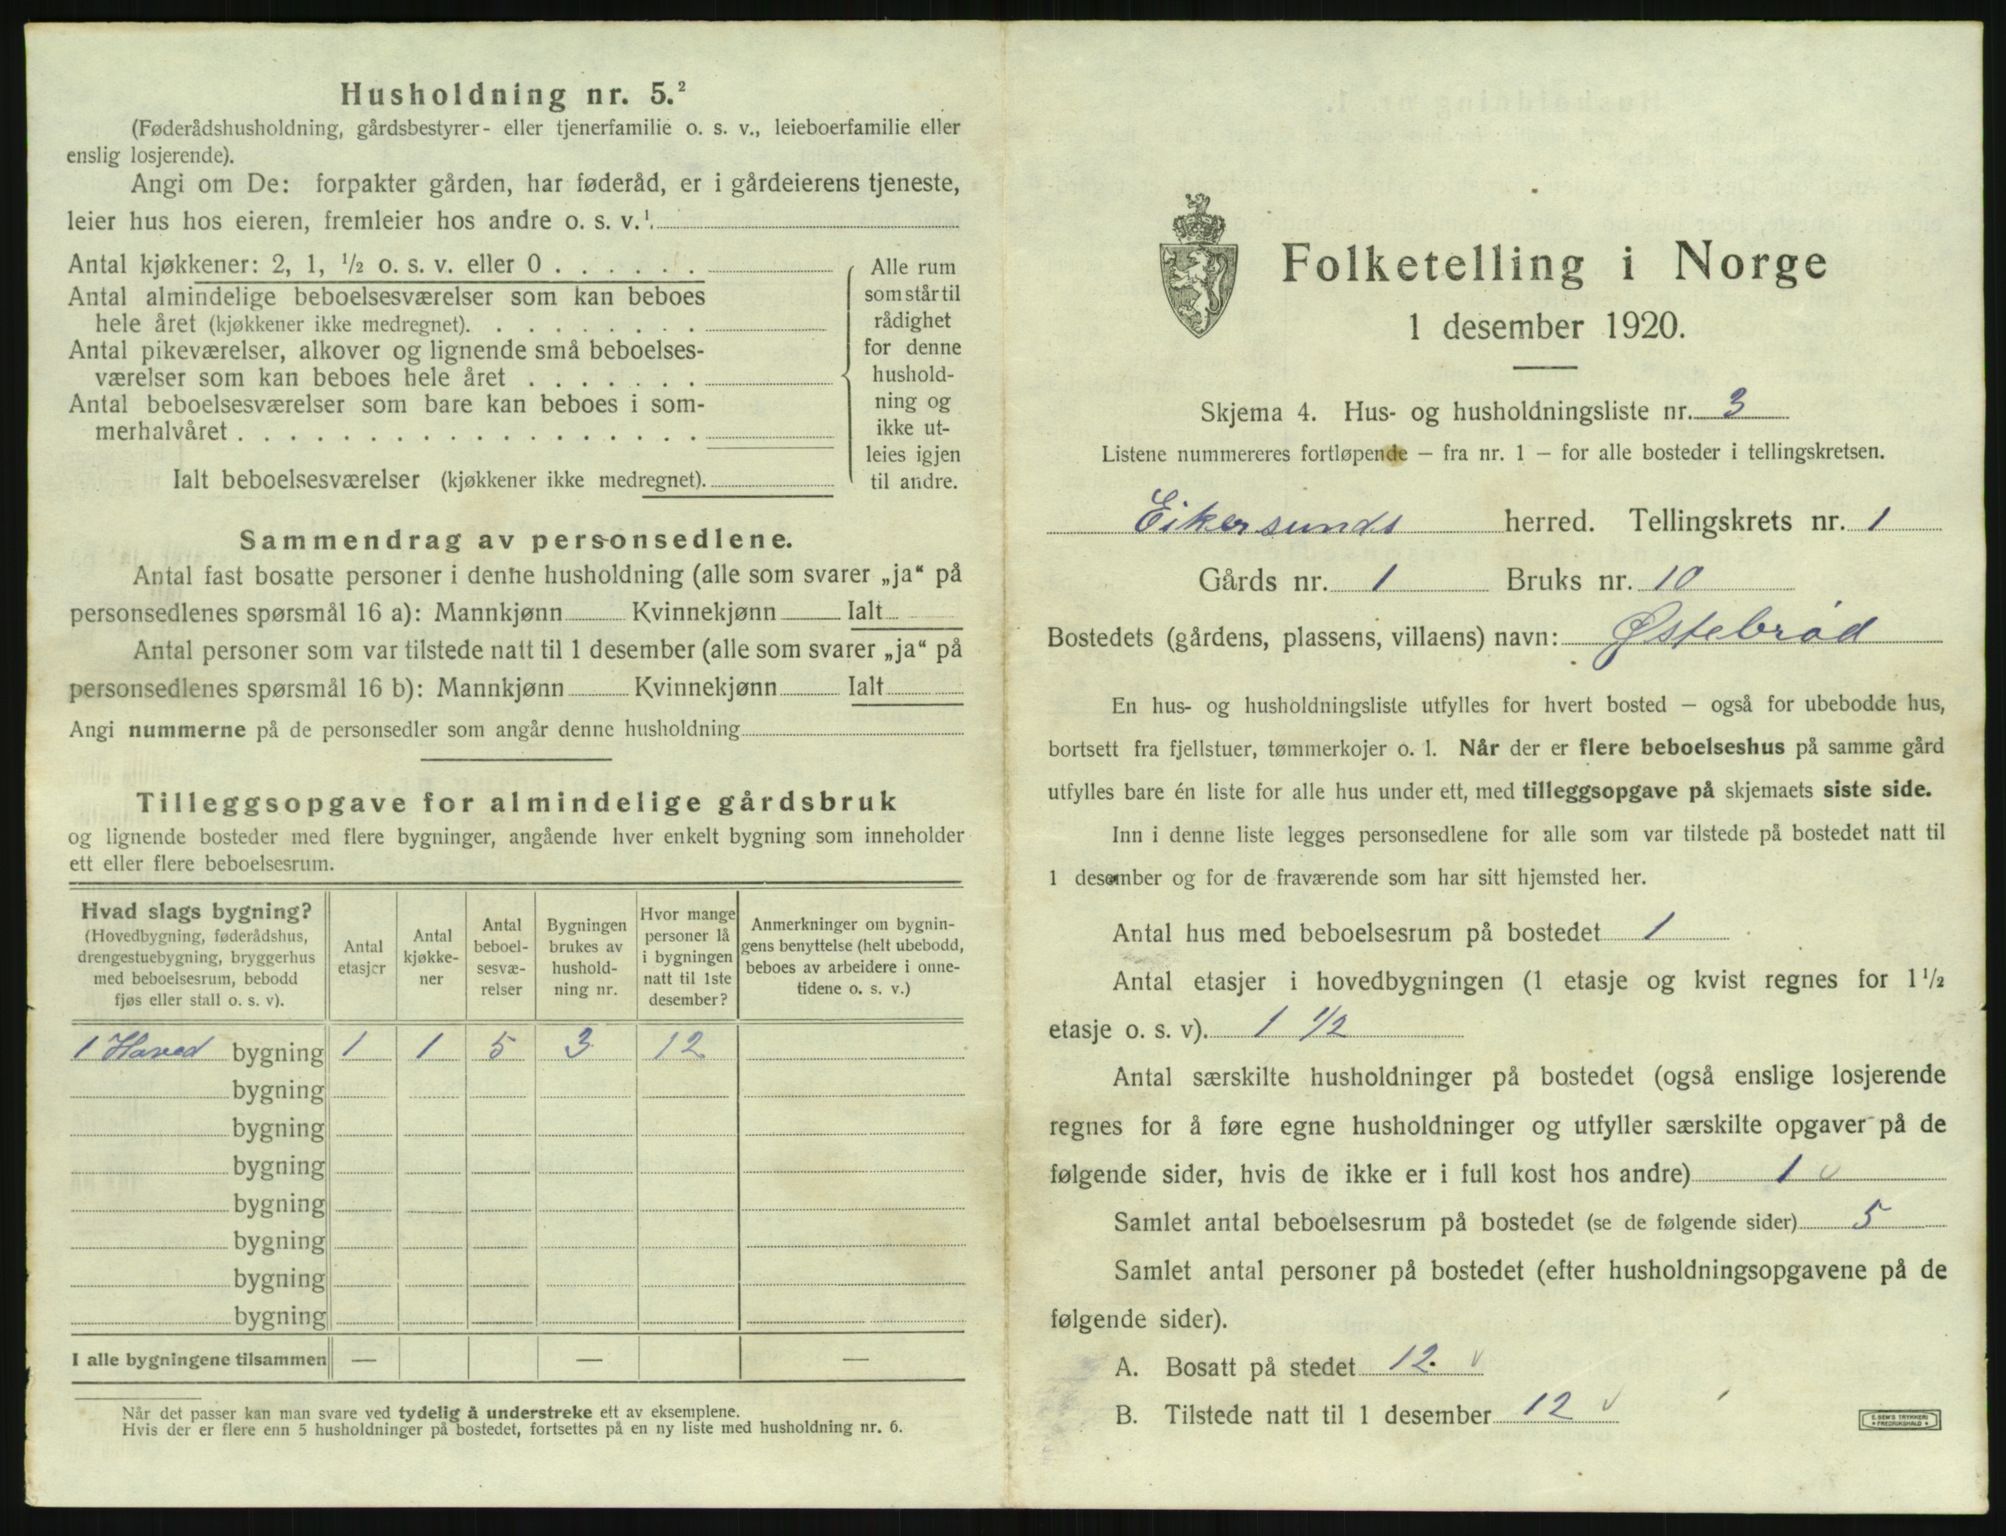 Husholdning nr. 5.²
(Føderådshusholdning, gårdsbestyrer- eller tjenerfamilie o. s. v., leieboerfamilie eller
enslig losjerende).
Angi om De: forpakter gården, har føderåd, er i gårdeierens tjeneste,
leier hus hos eieren, fremleier hos andre o. s. v.¹
Antal kjøkkener: 2, 1, ½ o. s. v. eller 0 . . . . . .
Antal almindelige beboelsesværelser som kan beboes
hele året (kjøkkener ikke medregnet). . . . . . . . .
Antal pikeværelser, alkover og lignende små beboelses-
værelser som kan beboes hele året . . . . . . .
Antal beboelsesværelser som bare kan beboes i som-
merhalvåret . . . . . . . . . . . . . . . . .
Ialt beboelsesværelser (kjøkkener ikke medregnet).
Alle rum
som står til
rådighet
for denne
hushold-
ning og
ikke ut-
leies igjen
til andre.
Sammendrag av personsedlene.
Antal fast bosatte personer i denne husholdning (alle som svarer „ja“ på
personsedlenes spørsmål 16 a): Mannkjønn Kvinnekjønn Ialt
Antal personer som var tilstede natt til 1 desember (alle som svarer „ja“ på
personsedlenes spørsmål 16 b): Mannkjønn Kvinnekjønn Ialt
Angi nummerne på de personsedler som angår denne husholdning
Tilleggsopgave for almindelige gårdsbruk
og lignende bosteder med flere bygninger, angående hver enkelt bygning som inneholder
ett eller flere beboelsesrum.
Hvad slags bygning?
(Hovedbygning, føderådshus,
drengestuebygning, bryggerhus
med beboelsesrum, bebodd
fjøs eller stall o. s. v).
Antal
etasjer
Antal
kjøkke-
ner
Antal
beboel-
sesvæ-
relser
Bygningen
brukes av
hushold-
ning nr.
Hvor mange
personer lå
i bygningen
natt til 1ste
desember?
Anmerkninger om bygnin-
gens benyttelse (helt ubebodd,
beboes av arbeidere i onne-
tidene o. s. v.)
1 Hoved bygning 1 1 5 3 12
bygning
bygning
bygning
bygning
bygning
bygning
bygning
I alle bygningene tilsammen — — —
Når det passer kan man svare ved tydelig å understreke ett av eksemplene.
Hvis der er flere enn 5 husholdninger på bostedet, fortsettes på en ny liste med husholdning nr. 6.
Folketelling i Norge
1 desember 1920.
Skjema 4. Hus- og husholdningsliste nr. 3
Listene nummereres fortløpende — fra nr. 1 — for alle bosteder i tellingskretsen.
Eikersunds herred. Tellingskrets nr. 1
Gårds nr. 1 Bruks nr. 10
Bostedets (gårdens, plassens, villaens) navn: Østebrød
En hus- og husholdningsliste utfylles for hvert bosted — også for ubebodde hus,
bortsett fra fjellstuer, tømmerkojer o. l. Når der er flere beboelseshus på samme gård
utfylles bare én liste for alle hus under ett, med tilleggsopgave på skjemaets siste side.
Inn i denne liste legges personsedlene for alle som var tilstede på bostedet natt til
1 desember og for de fraværende som har sitt hjemsted her.
Antal hus med beboelsesrum på bostedet 1
Antal etasjer i hovedbygningen (1 etasje og kvist regnes for 1½
etasje o. s. v). 1 ½
Antal særskilte husholdninger på bostedet (også enslige losjerende
regnes for å føre egne husholdninger og utfyller særskilte opgaver på de
følgende sider, hvis de ikke er i full kost hos andre) 1 v
Samlet antal beboelsesrum på bostedet (se de følgende sider) 5
Samlet antal personer på bostedet (efter husholdningsopgavene på de
følgende sider).
A. Bosatt på stedet 12. v
B. Tilstede natt til 1 desember 12 v
E. SEM'S TRYKKERI
FREDRIKSHALD